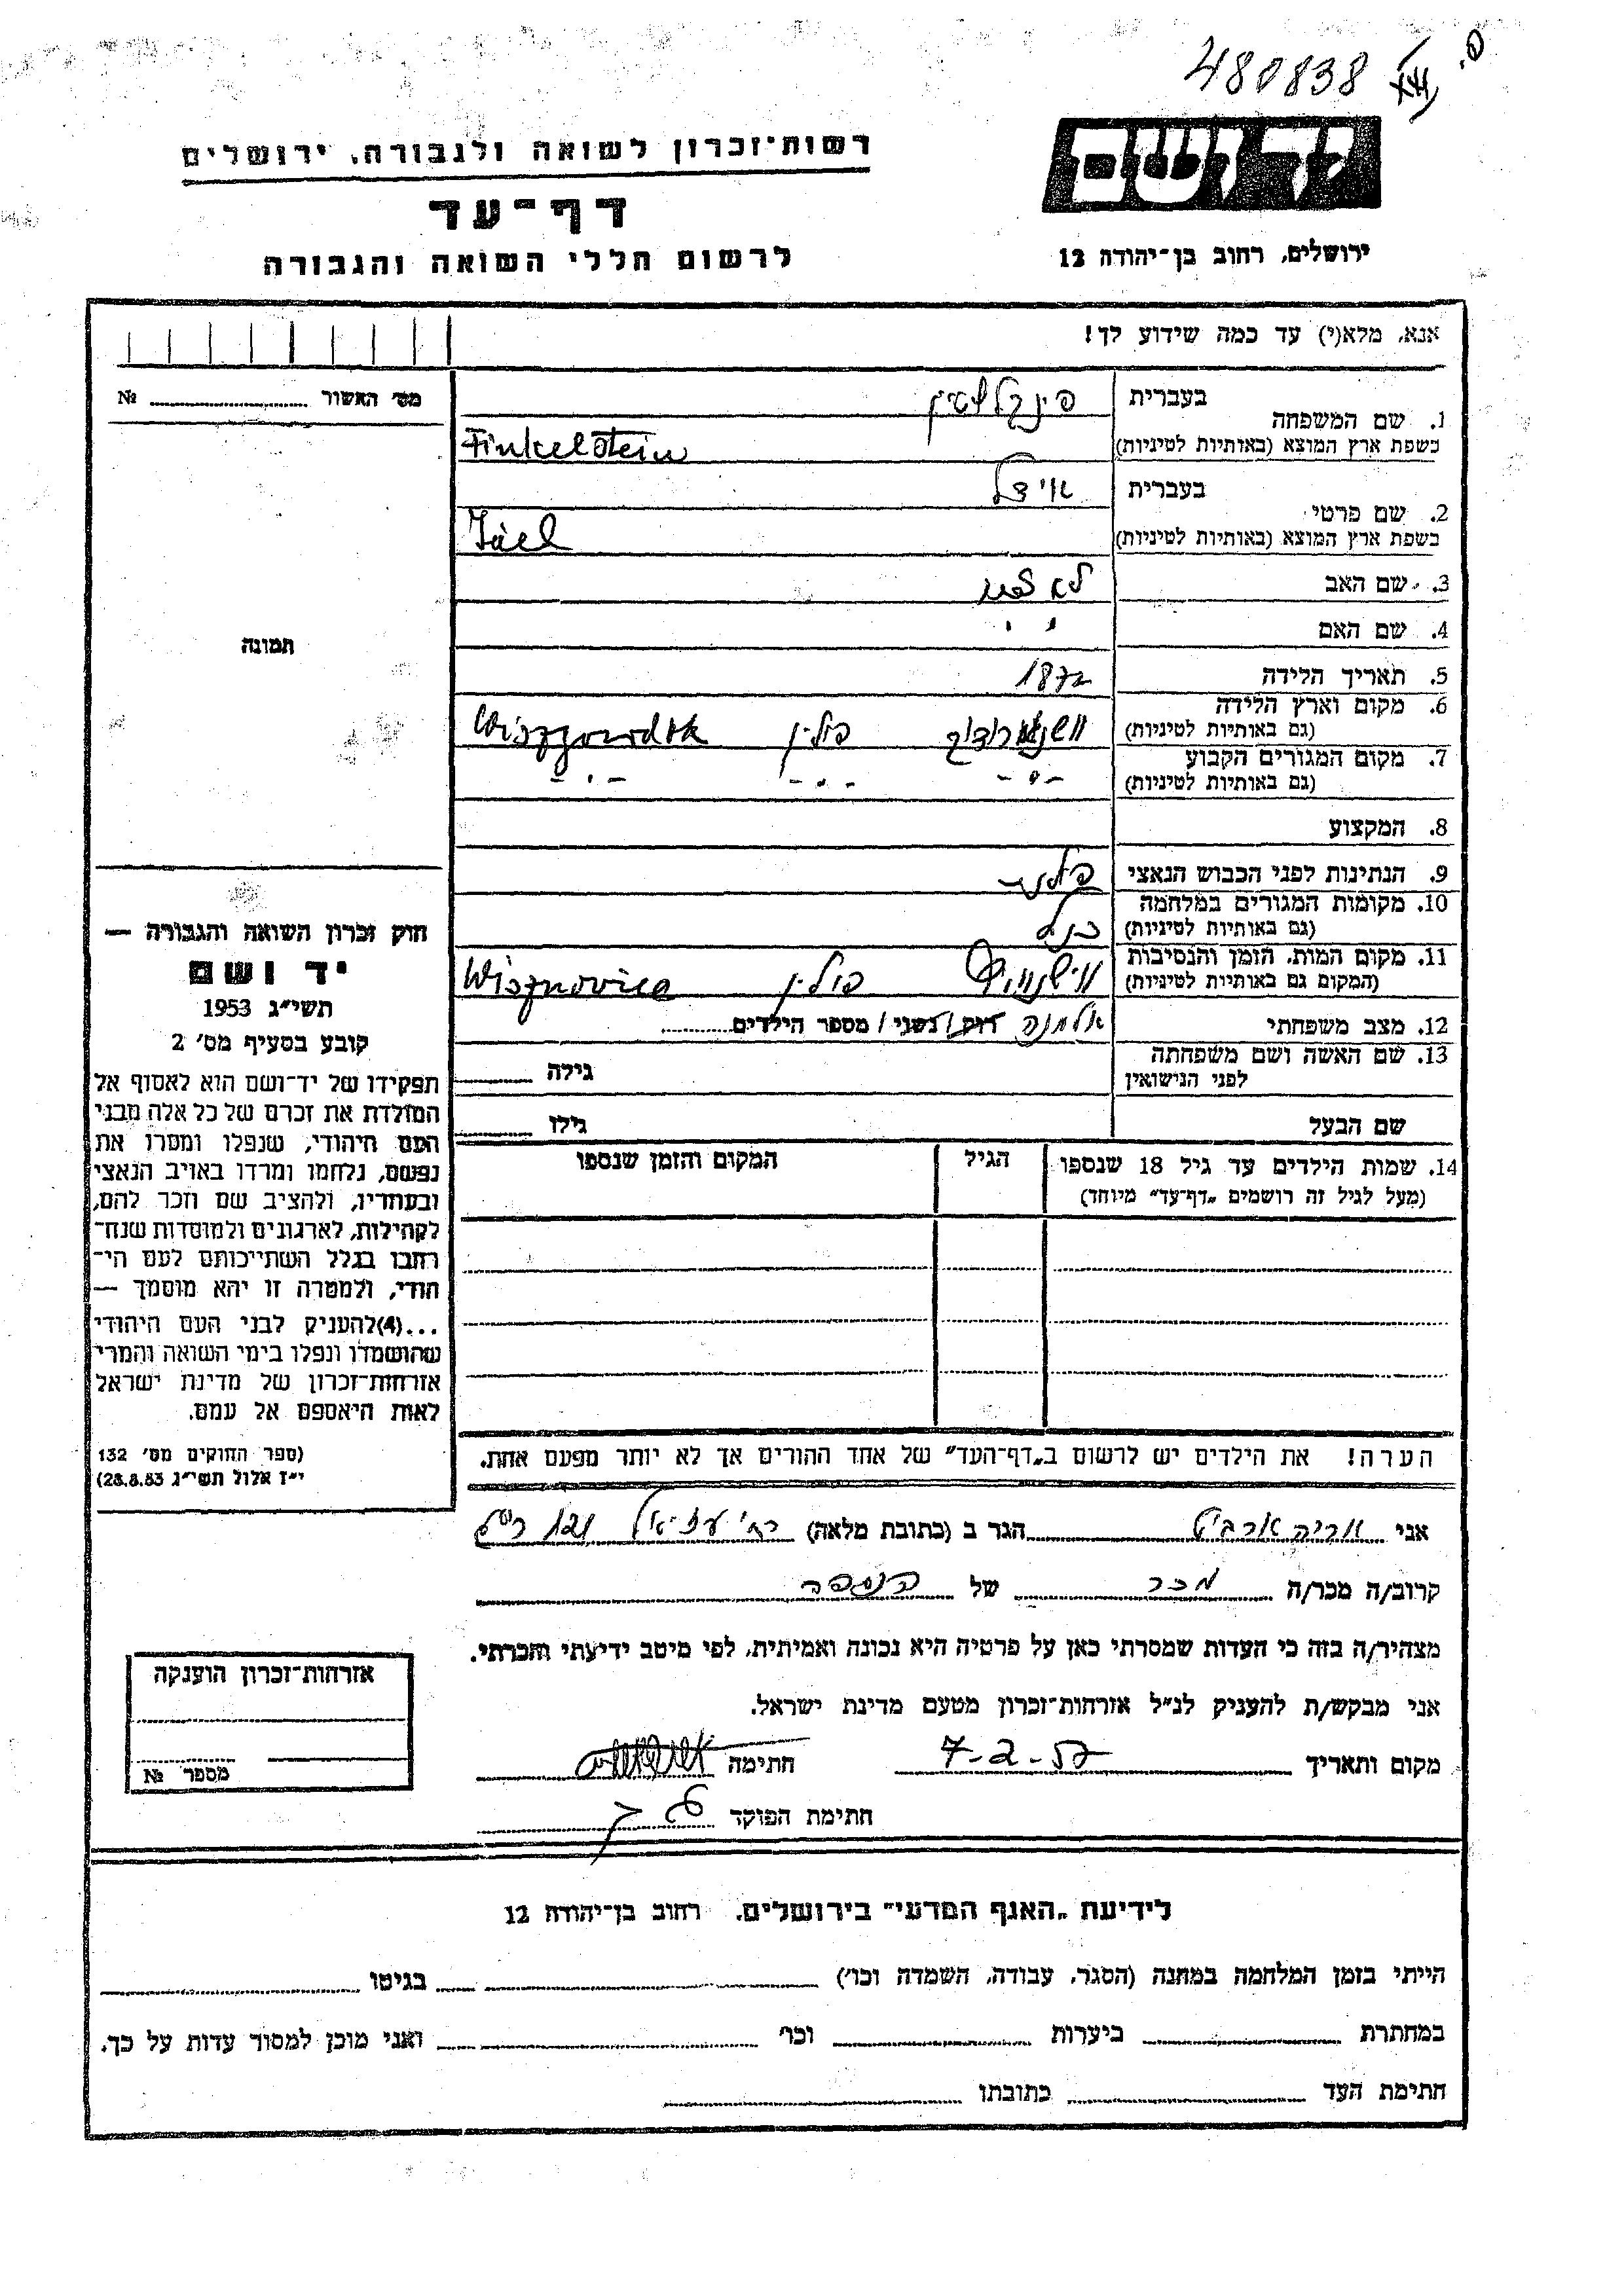 480838
יד ושם
רשות־זכרון לשואה ולגבורה, ירושלים
דף־עד
לרשום חללי השואה והגבורה
ירושלים, רחוב בן־יהודה 12
אנא, מלא(י) עד כמה שידוע לך!
מס׳ האשור № 
1. שם המשפחה
בעברית פינקלשטיין
בשפת ארץ המוצא (באותיות לטיניות) Finkelstein
2. שם פרטי
בעברית
בשפת ארץ המוצא (באותיות לטיניות)
3. שם האב לא
4. שם האם " "
5. תאריך הלידה 1872
6. מקום וארץ הלידה
(גם באותיות לטיניות) פולין
7. מקום המגורים הקבוע
(גם באותיות לטיניות) -"- -"- -"-
8. המקצוע
9. הנתינות לפני הכבוש הנאצי פולנית
10. מקומות המגורים במלחמה
(גם באותיות לטיניות) כנ"ל
11. מקום המות, הזמן והנסיבות
(המקום גם באותיות לטיניות) פולין
12. מצב משפחתי אלמנה רווק / נשוי / מספר הילדים
13. שם האשה ושם משפחתה
לפני הנישואין גילה
שם הבעל גילו
14. שמות הילדים עד גיל 18 שנספו הגיל המקום והזמן שנספו
(מעל לגיל זה רושמים „דף־עד״ מיוחד)
הערה! את הילדים יש לרשום ב„דף־העד״ של אחד ההורים אך לא יותר מפעם אחת.
תמונה
חוק זכרון השואה והגבורה —
יד ושם
תשי״ג 1953
קובע בסעיף מס׳ 2
תפקידו של יד־ושם הוא לאסוף אל
המולדת את זכרם של כל אלה מבני
העם היהודי, שנפלו ומסרו את
נפשם, נלחמו ומרדו באויב הנאצי
ובעוזריו, ולהציב שם וזכר להם,
לקהילות, לארגונים ולמוסדות שנח־
רבו בגלל השתייכותם לעם הי־
הודי, ולמטרה זו יהא מוסמך —
...(4)להעניק לבני העם היהודי
שהושמדו ונפלו בימי השואה והמרי
אזרחות־זכרון של מדינת ישראל
לאות היאספם אל עמם.
(ספר החוקים מס׳ 132
י״ז אלול תשי״ג 28.8.53)
אני אריה הגר ב (כתובת מלאה) רח׳ עזיאל
קרוב/ה מכר/ה מכר של הנספה
מצהיר/ה בזה כי העדות שמסרתי כאן על פרטיה היא נכונה ואמיתית, לפי מיטב ידיעתי והכרתי.
אני מבקש/ת להעניק לנ״ל אזרחות־זכרון מטעם מדינת ישראל.
מקום ותאריך 7-2-57 חתימה
חתימת הפוקד
אזרחות־זכרון הוענקה
מספר №
לידיעת „האגף המדעי״ בירושלים, רחוב בן־יהודה 12
הייתי בזמן המלחמה במחנה (הסגר, עבודה, השמדה וכו׳) בגיטו
במחתרת ביערות וכו׳ ואני מוכן למסור עדות על כך.
חתימת העד כתובתו